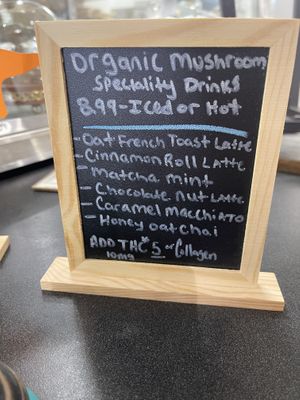 Organic Mushroom
Speciality Drinks
8.99-Iced or Hot
- Oat French Toast Latte
- Cinnamon Roll Latte
- Matcha mint
- Chocolate nut Latte
- Caramel macchiato
- Honey oat chai
ADD THC $5 or Collagen
10mg